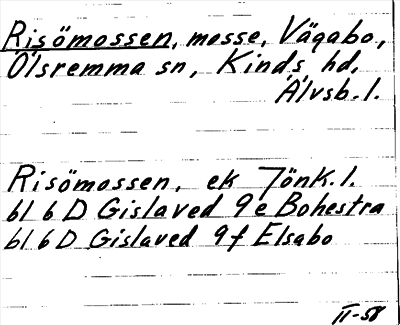 Risömossen, mosse, Vägabo,
Ölsremma sn, Kinds hd,
Älvsb. l.
Risömossen, ek Jönk. l.
bl 6 D Gislaved 9 e Bohestra
bl 6 D Gislaved 9 f Elsabo
II-58